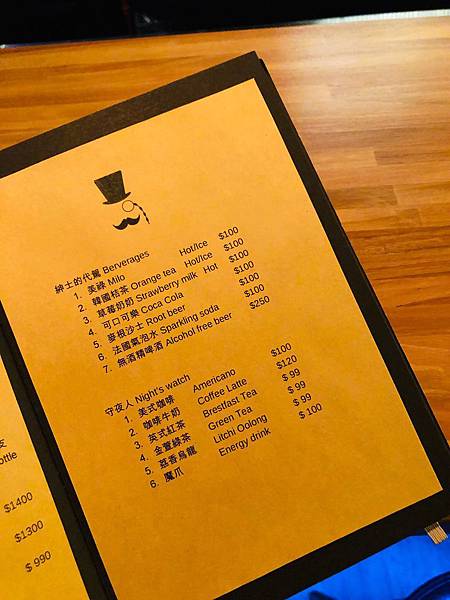 支
ottle
$1400
$1300
$ 990
紳士的代駕 Berverages
1. 美綠 Milo Hot/Ice $100
2. 韓國桔茶 Orange tea Hot/Ice $100
3. 草莓奶奶 Strawberry milk Hot $100
4. 可口可樂 Coca Cola $100
5. 麥根沙士 Root beer $100
6. 法國氣泡水 Sparkling soda $100
7. 無酒精啤酒 Alcohol free beer $250
守夜人 Night's watch
1. 美式咖啡 Americano $100
2. 咖啡牛奶 Coffee Latte $120
3. 英式紅茶 Brestfast Tea $ 99
4. 金萱綠茶 Green Tea $ 99
5. 荔香烏龍 Litchi Oolong $ 99
6. 魔爪 Energy drink $ 100